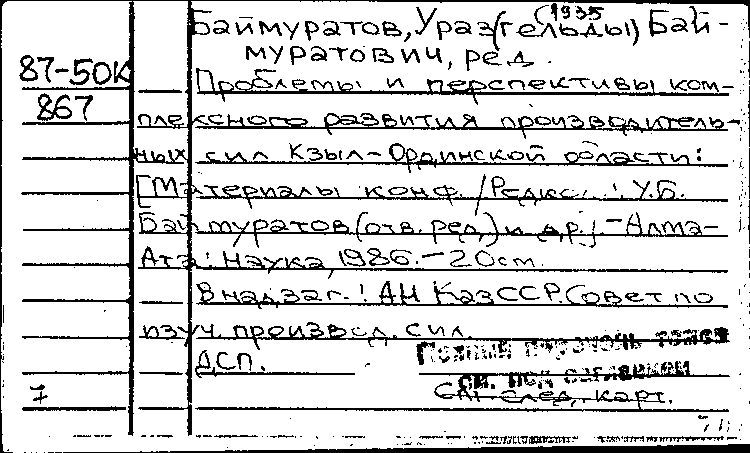 (1935
Баймуратов, Ураз(гельды) Бай-
муратович, ред.
87-50К
867
Проблемы и перспективы ком-
плексного развития производитель-
ных сил Кзыл-Ординской области:
[Материалы конф. /Редкол.: У.Б.
Баймуратов (отв. ред.) и др.] -Алма-
Ата: Наука, 1986.-20см.
В надзаг.: АН КазССР. Совет по
изуч. производ. сил.
ДСП.
Полный перечень томов
см. под заглавием
См. след. карт.
7